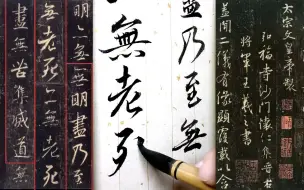 太宗文皇帝製
弘福寺沙門懷仁集晉右
將軍王羲之書
蓋聞二儀有像顯覆載以含
盡乃至無
無老死
明亦無無明盡乃至
無老死亦無老死
盡無苦集滅道無